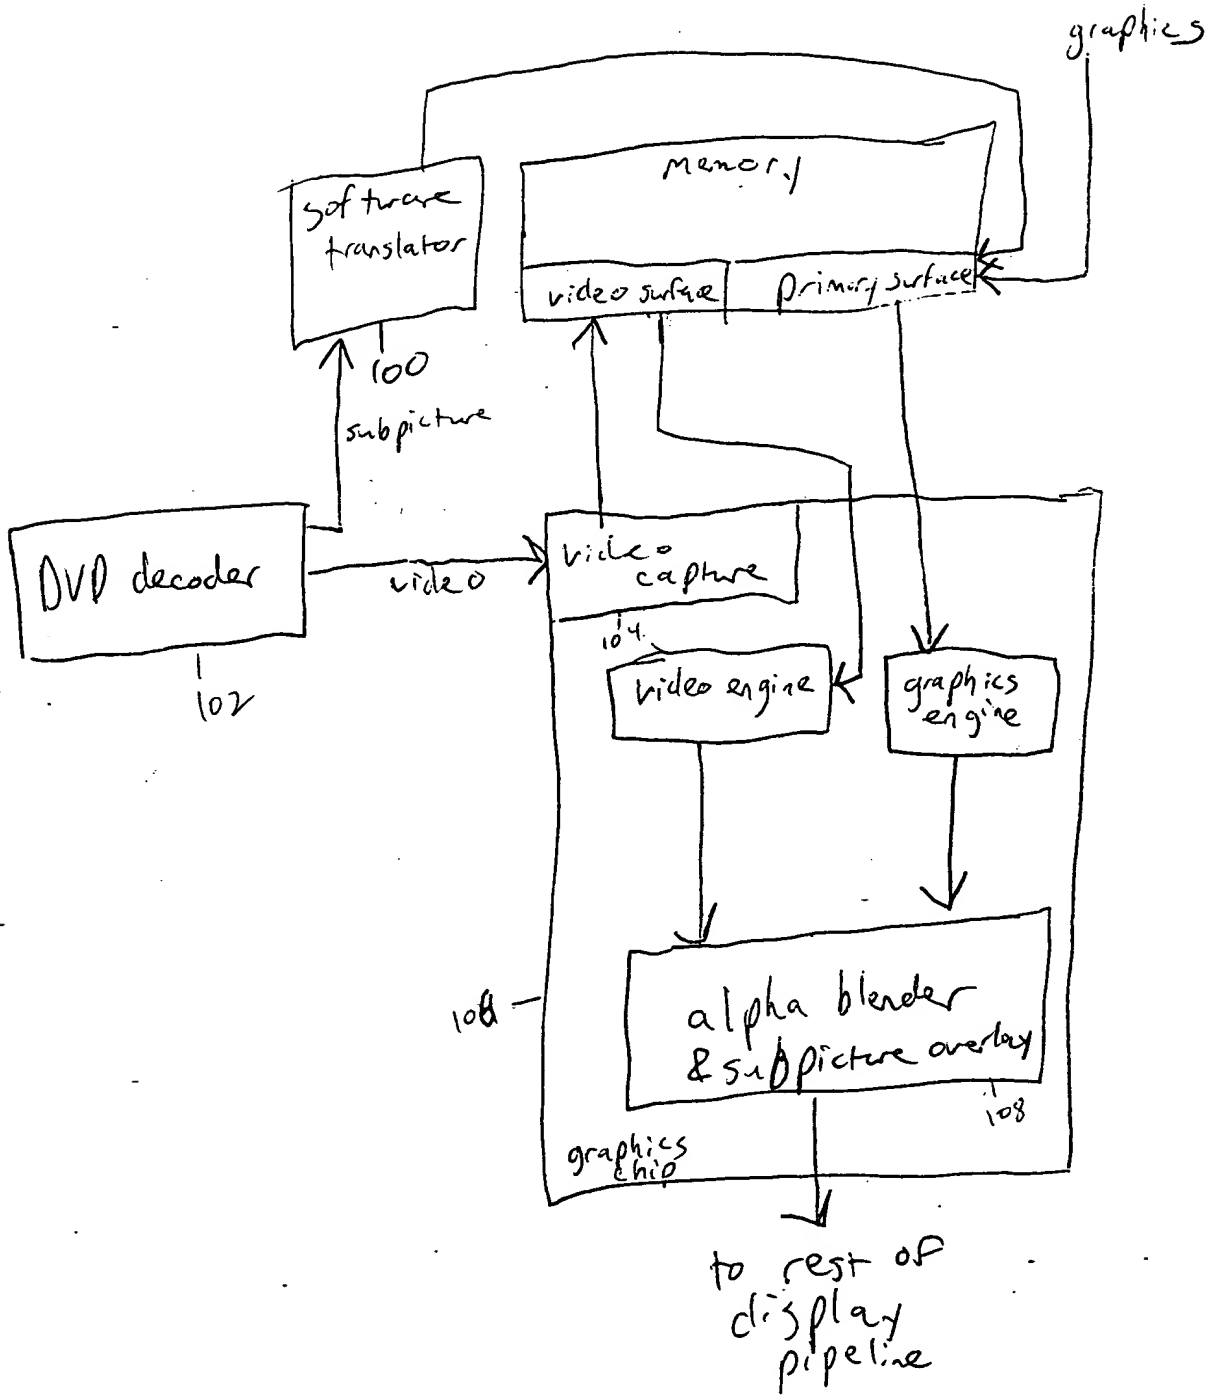 graphics
memory
software
translator
video surface
primary surface
100
subpicture
DVD decoder
video
video
capture
102
104
video engine
graphics
engine
alpha blender
& subpicture overlay
108
graphics
chip
to rest of
display
pipeline